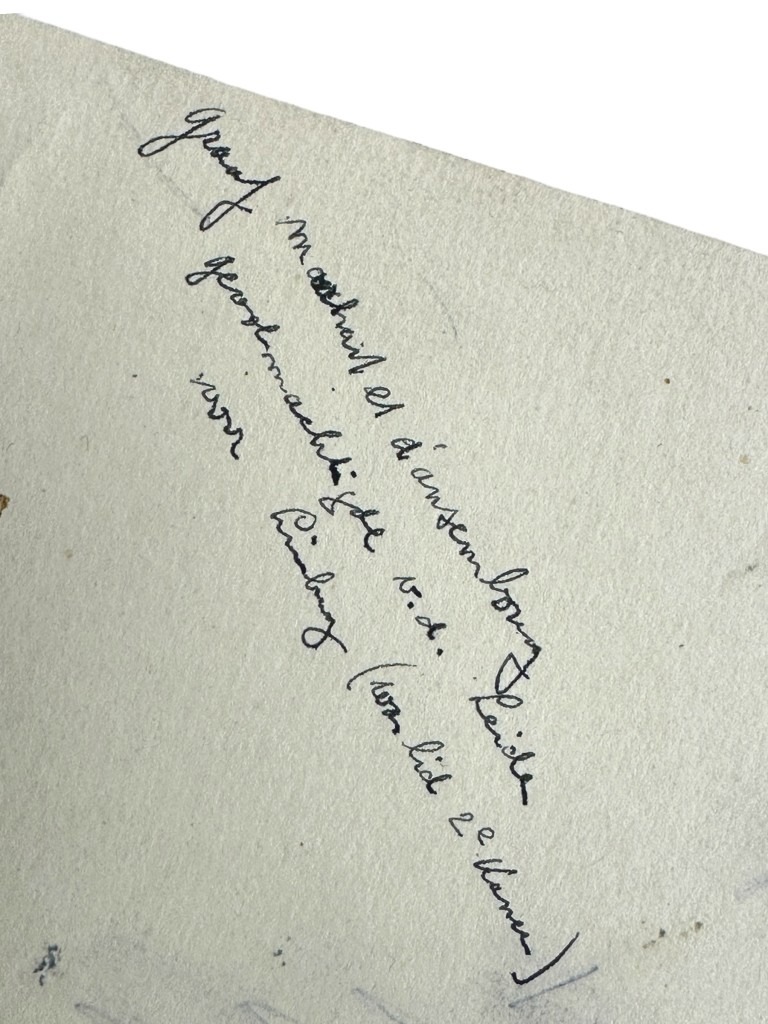 Graaf Marchant et d'Ansembourg
gevolmachtigde v.d. Leider
voor Limburg (was lid 2e Kamer)